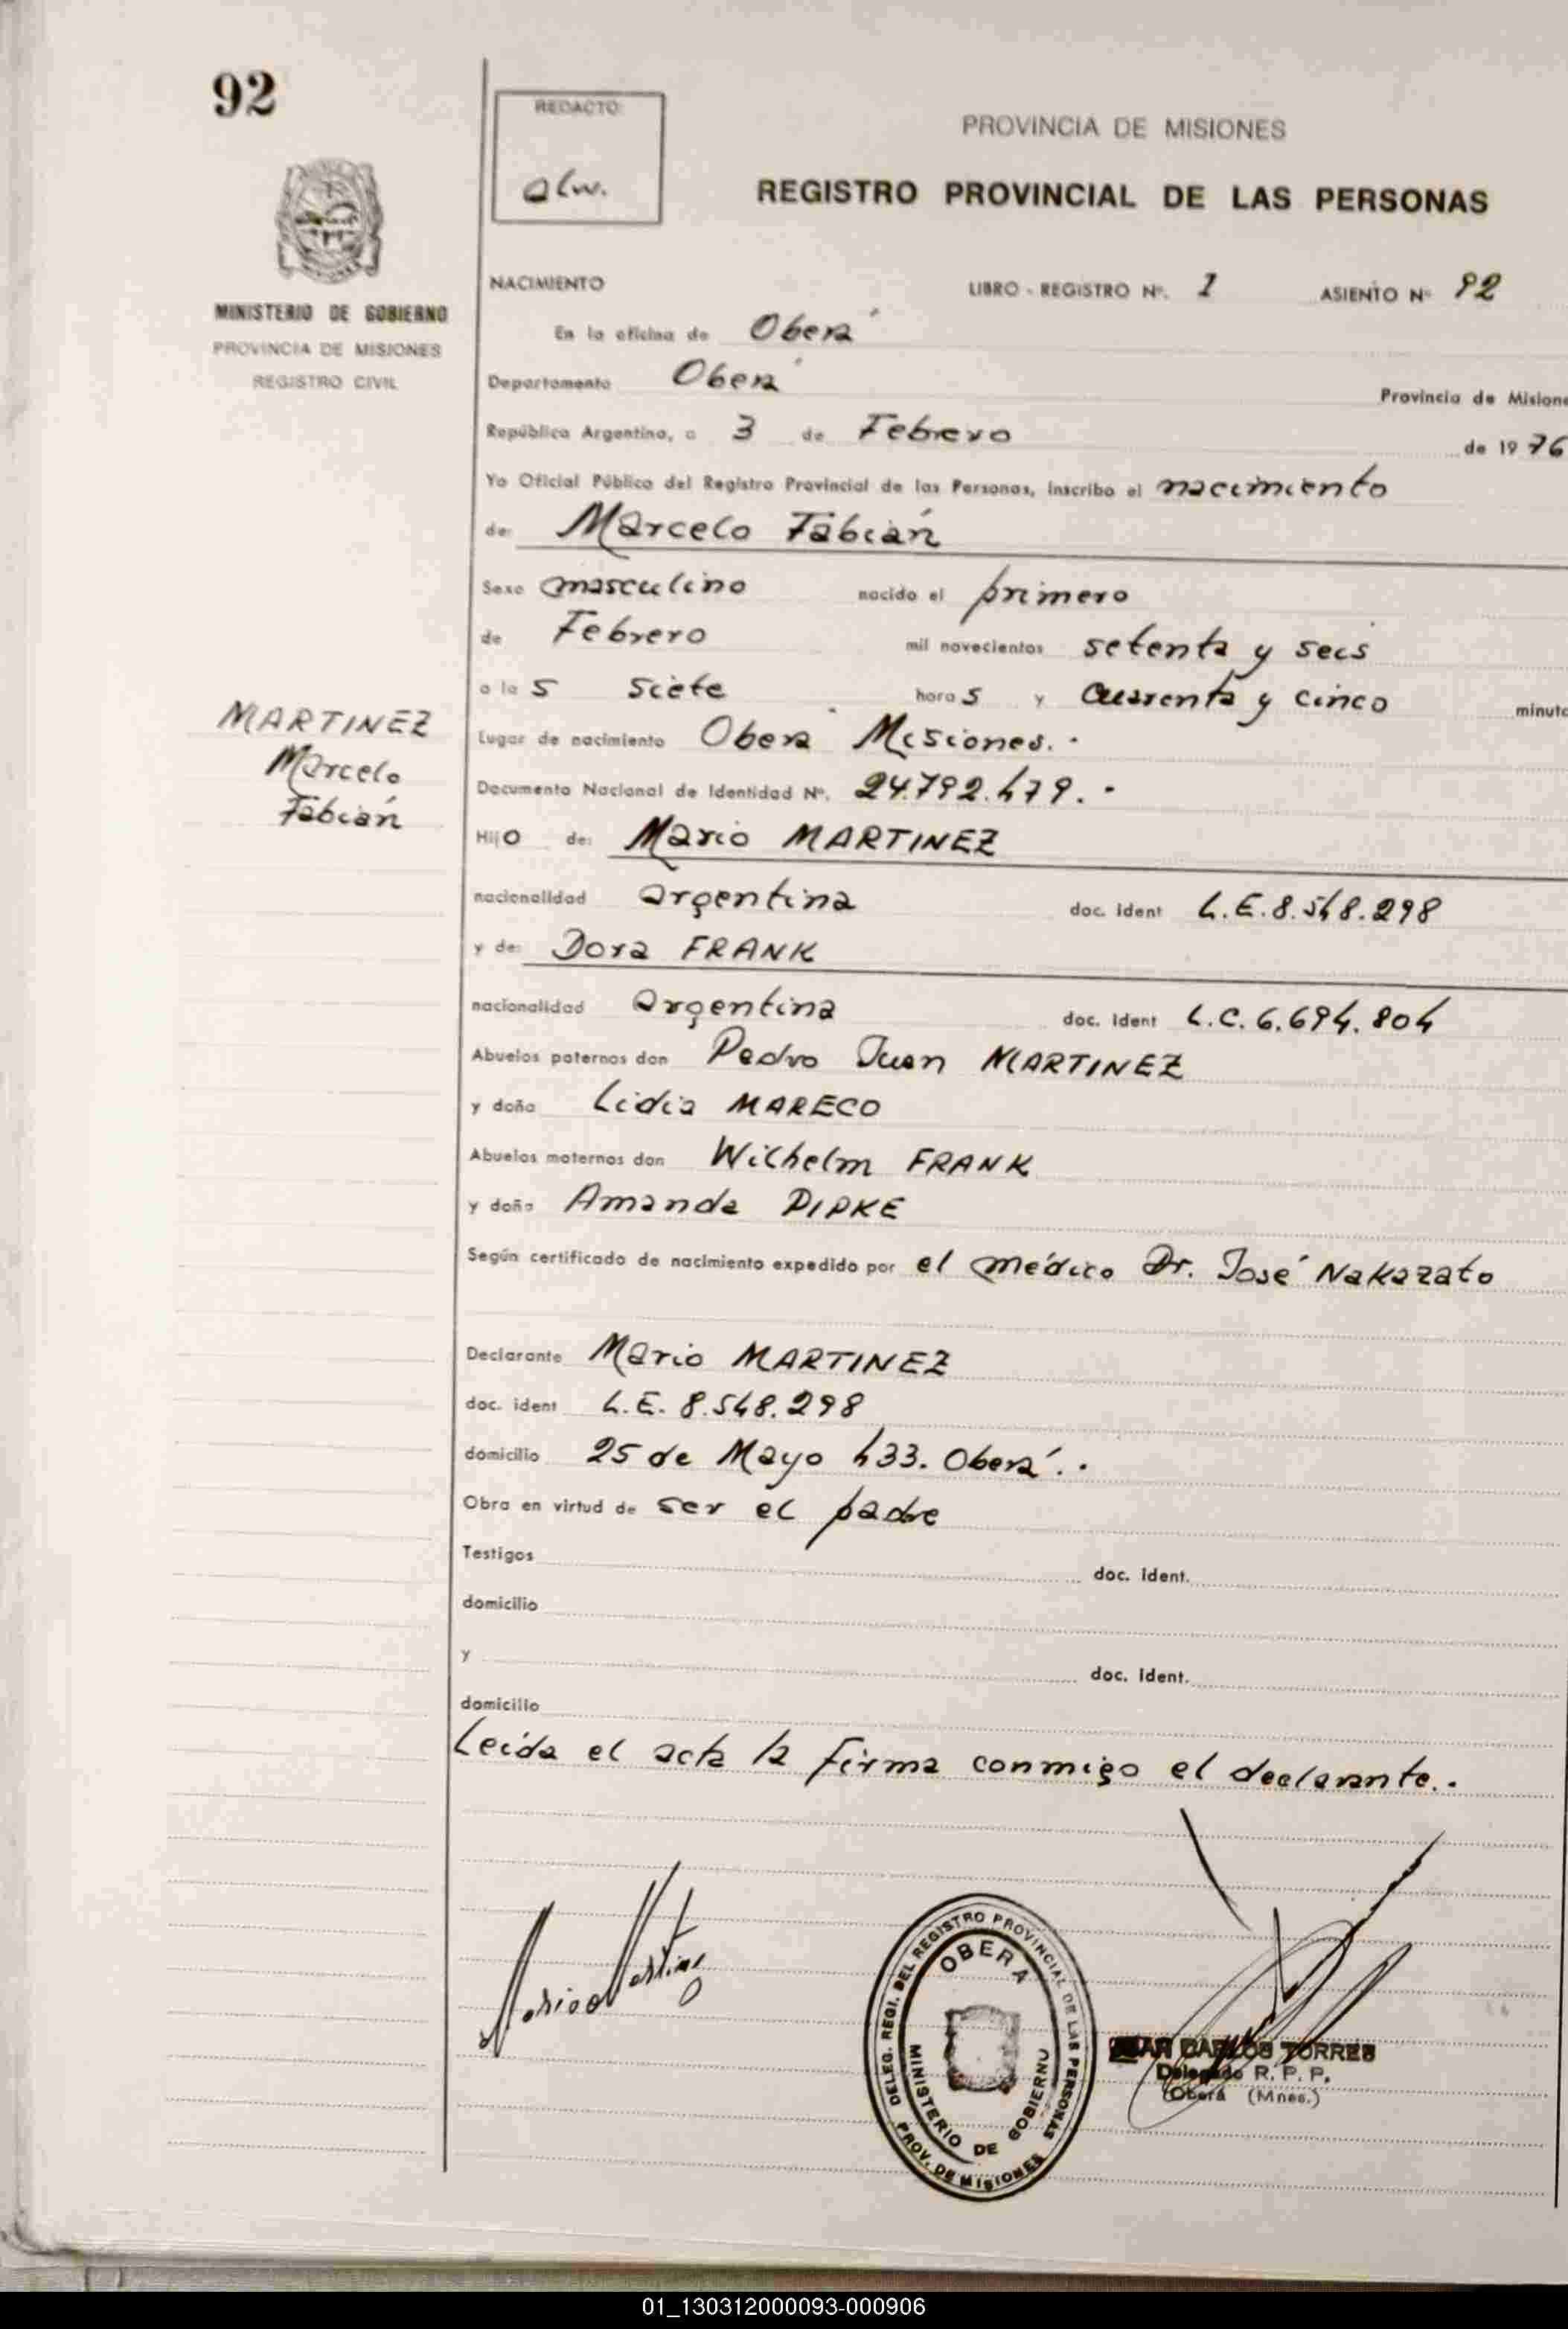 92
REDACTO:
alw.
PROVINCIA DE MISIONES
REGISTRO PROVINCIAL DE LAS PERSONAS
MINISTERIO DE GOBIERNO
PROVINCIA DE MISIONES
REGISTRO CIVIL
NACIMIENTO LIBRO - REGISTRO Nº. 1 ASIENTO Nº 92
En la oficina de Oberá
Departamento Oberá Provincia de Misione
República Argentina, a 3 de Febrero de 1976
Yo Oficial Público del Registro Provincial de las Personas, inscribo el nacimiento
de: Marcelo Fabián
Sexo masculino nacido el primero
de Febrero mil novecientos setenta y seis
a las siete horas y cuarenta y cinco minuto
Lugar de nacimiento Oberá Misiones.-
Documento Nacional de Identidad Nº. 24.792.479.-
MARTINEZ
Marcelo
Fabián
Hijo de: Mario MARTINEZ
nacionalidad argentina doc. ident L.E.8.548.298
y de: Dora FRANK
nacionalidad argentina doc. ident L.C.6.694.804
Abuelos paternos don Pedro Juan MARTINEZ
y doña Lidia MARECO
Abuelos maternos don Wilhelm FRANK
y doña Amanda PIPKE
Según certificado de nacimiento expedido por el médico Dr. José Nakazato
Declarante Mario MARTINEZ
doc. ident L.E. 8.548.298
domicilio 25 de Mayo 433. Oberá.-
Obra en virtud de ser el padre
Testigos doc. ident.
domicilio
y doc. ident.
domicilio
Leida el acta la firma conmigo el declarante.-
Mario Martinez
DELEG. REGI. DEL REGISTRO PROVINCIAL DE LAS PERSONAS
OBERA
MINISTERIO DE GOBIERNO
PROV. DE MISIONES
CARLOS TORRES
Delegado R. P. P.
Oberá (Mnes.)
01_130312000093-000906